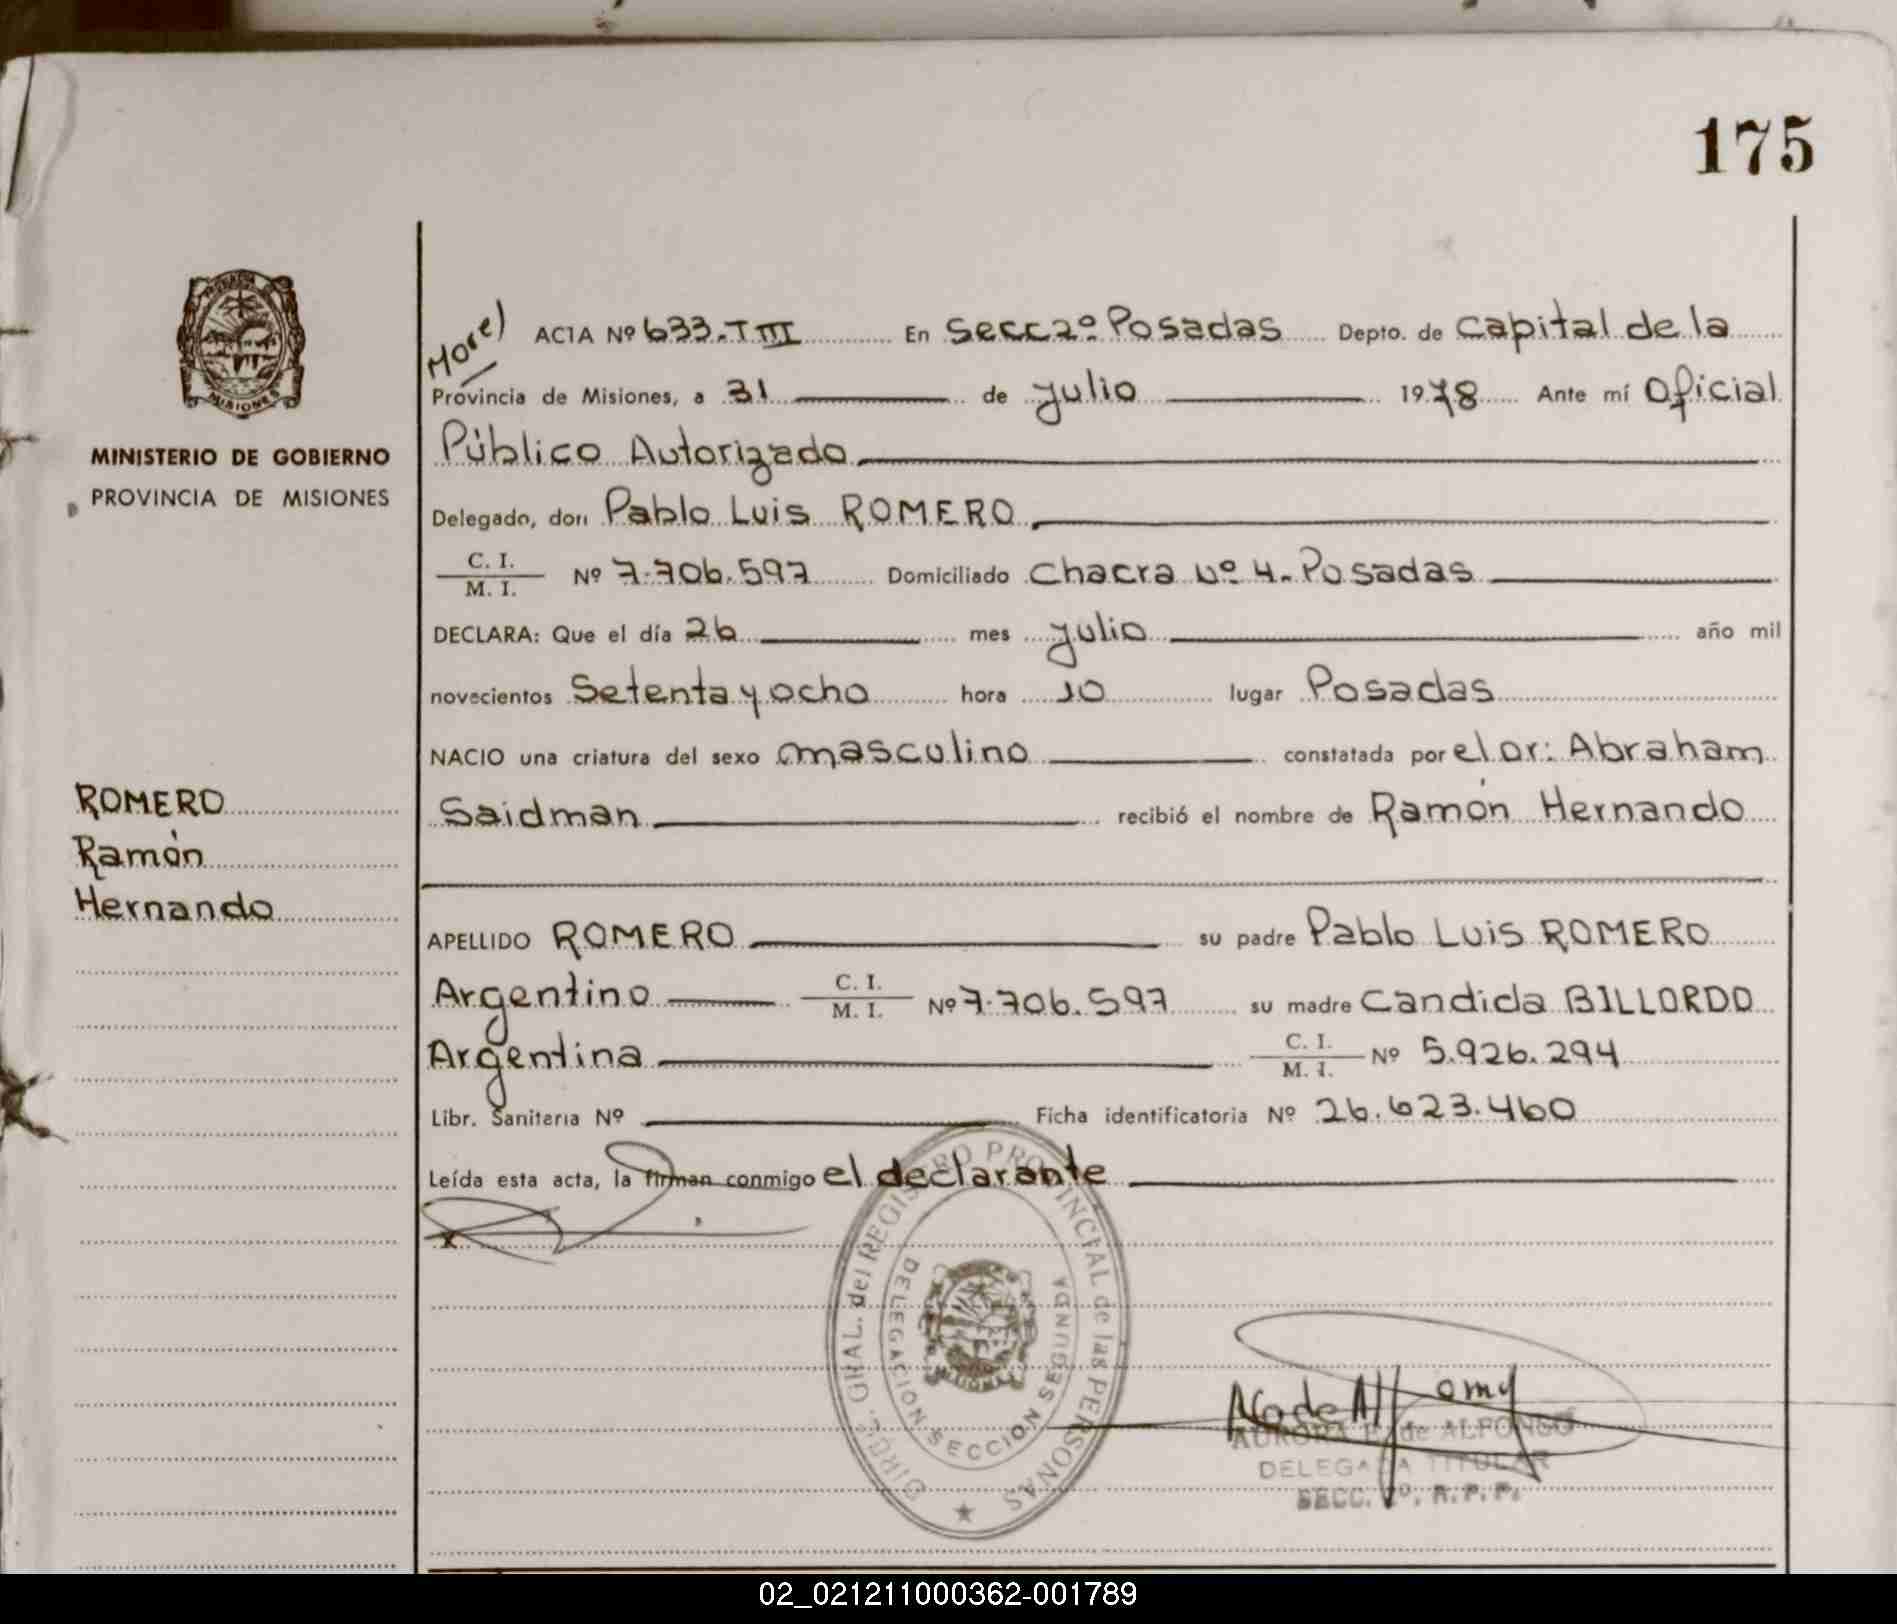 175
Morel
ACTA Nº 633.-T III En Secc 2º Posadas Depto. de Capital de la
Provincia de Misiones, a 31 de julio 1978 Ante mí Oficial
Público Autorizado
Delegado, don Pablo Luis ROMERO
C. I.
M. I. Nº 7.706.597 Domiciliado Chacra Nº 4.- Posadas
DECLARA: Que el día 26 mes julio año mil
novecientos Setenta y ocho hora 10 lugar Posadas
NACIO una criatura del sexo masculino constatada por el Dr: Abraham
Saidman recibió el nombre de Ramón Hernando
APELLIDO ROMERO su padre Pablo Luis ROMERO
Argentino C. I.
M. I. Nº 7.706.597 su madre Candida BILLORDO
Argentina C. I.
M. I. Nº 5.926.294
Libr. Sanitaria Nº Ficha identificatoria Nº 26.623.460
Leída esta acta, la firman conmigo el declarante
x
MISIONES
MINISTERIO DE GOBIERNO
PROVINCIA DE MISIONES
ROMERO
Ramón
Hernando
DIRECC. GRAL. del REGISTRO PROVINCIAL de las PERSONAS
DELEGACION SECCION SEGUNDA
AURORA de ALFONSO
DELEGADA TITULAR
SECC. 2º, R.P.P.
02_021211000362-001789